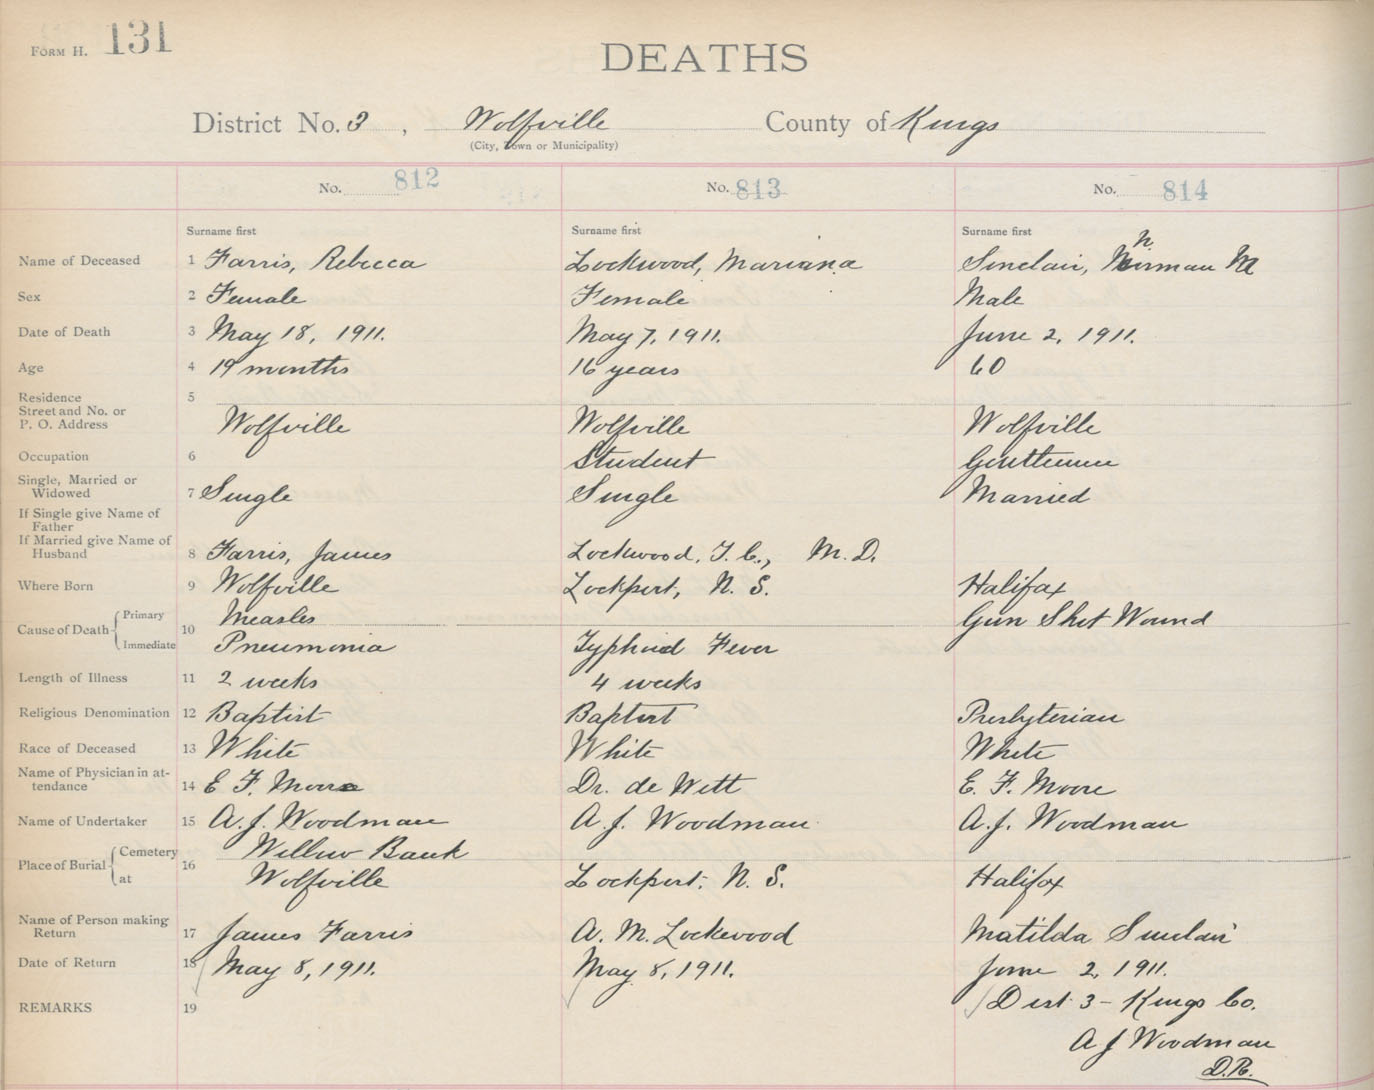 FORM H. 131
DEATHS
District No. 3, Wolfville County of Kings
(City, Town or Municipality)
No. 812 No. 813 No. 814
Surname first Surname first Surname first
Name of Deceased 1 Farris, Rebecca Lockwood, Mariana Sinclair, Norman M
Sex 2 Female Female Male
Date of Death 3 May 18, 1911. May 7, 1911. June 2, 1911.
Age 4 19 months 16 years 60
Residence 5
Street and No. or
P. O. Address Wolfville Wolfville Wolfville
Occupation 6 Student Gentleman
Single, Married or
Widowed 7 Single Single Married
If Single give Name of
Father
If Married give Name of
Husband 8 Farris, James Lockwood, T. C., M. D.
Where Born 9 Wolfville Lockport, N. S. Halifax
Cause of Death Primary 10 Measles Gun Shot Wound
Immediate Pneumonia Typhoid Fever
Length of Illness 11 2 weeks 4 weeks
Religious Denomination 12 Baptist Baptist Presbyterian
Race of Deceased 13 White White White
Name of Physician in at-
tendance 14 E F. Moore Dr. de Witt E. F. Moore
Name of Undertaker 15 A. J. Woodman A. J. Woodman A. J. Woodman
Place of Burial Cemetery 16 Willow Bank
at Wolfville Lockport, N. S. Halifax
Name of Person making
Return 17 James Farris A. M. Lockwood Matilda Sinclair
Date of Return 18 May 8, 1911. May 8, 1911. June 2, 1911.
REMARKS 19 Dist 3 - Kings Co.
A J Woodman
D.R.